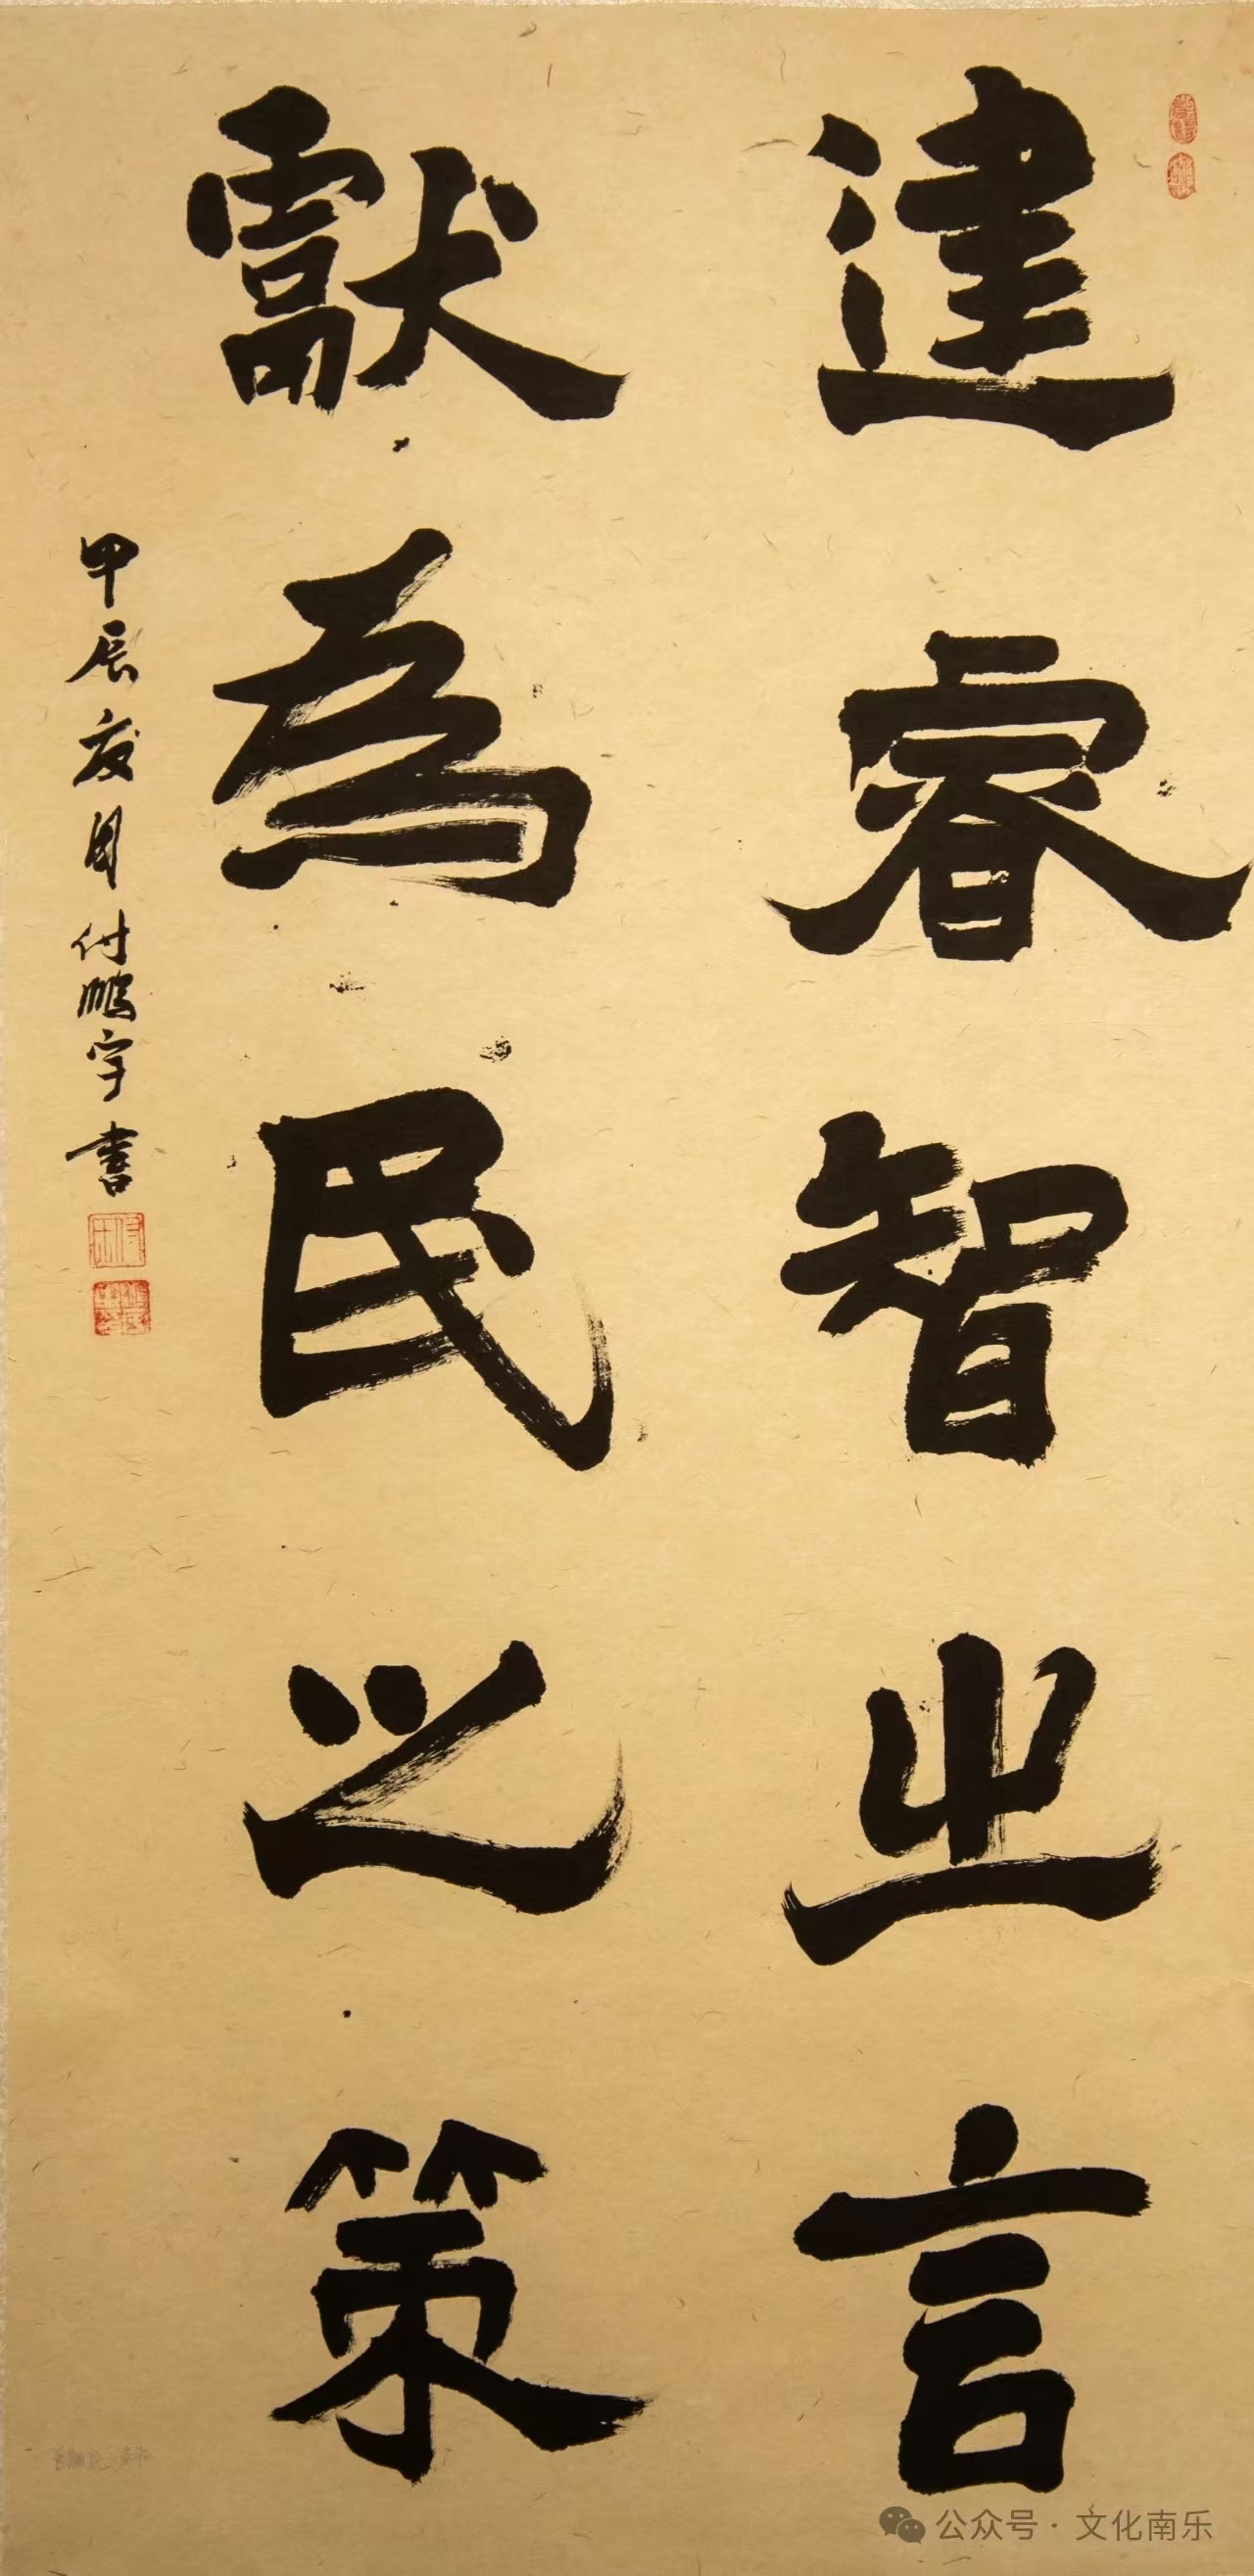 建睿智之言
獻為民之策
甲辰夏月付鵬宇書
公众号·文化南乐